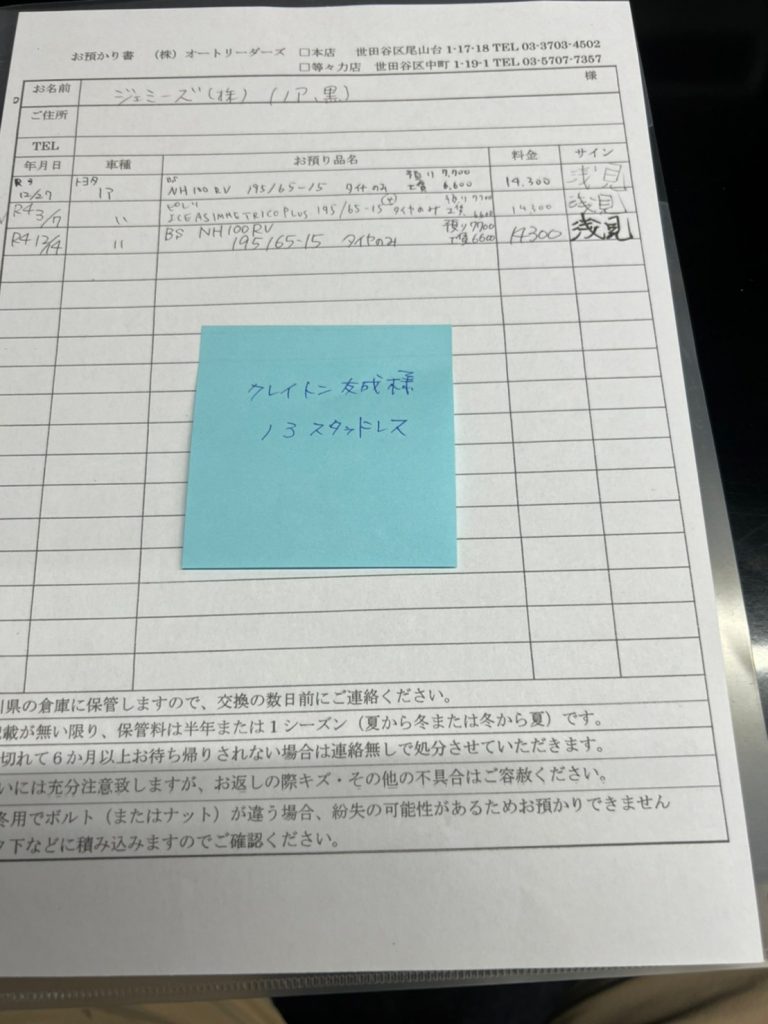 お預かり書 (株)オートリーダーズ □本店 世田谷区尾山台 1-17-18 TEL 03-3703-4502
□等々力店 世田谷区中町 1-19-1 TEL 03-5707-7357
お名前 ジェミーズ(株) (ノア、黒) 様
ご住所
TEL
年月日 車種 お預り品名 料金 サイン
R3 12/27 トヨタ ノア BS NH100RV 195/65-15 タイヤのみ 預り 7,700 工賃 6,600 14,300 浅見
R4 3/7 〃 ピレリ ICE ASIMMETRICO PLUS 195/65-15 タイヤのみ 預り 7700 工賃 6600 14300 浅見
R4 12/4 〃 BS NH100RV 195/65-15 タイヤのみ 預り7700 工賃6600 14300 浅見
クレイトン友成様
13スタッドレス
川県の倉庫に保管しますので、交換の数日前にご連絡ください。
記載が無い限り、保管料は半年または1シーズン(夏から冬または冬から夏)です。
切れて6か月以上お待ち帰りされない場合は連絡無しで処分させていただきます。
いには充分注意致しますが、お返しの際キズ・その他の不具合はご容赦ください。
冬用でボルト(またはナット)が違う場合、紛失の可能性があるためお預かりできません
ク下などに積み込みますのでご確認ください。